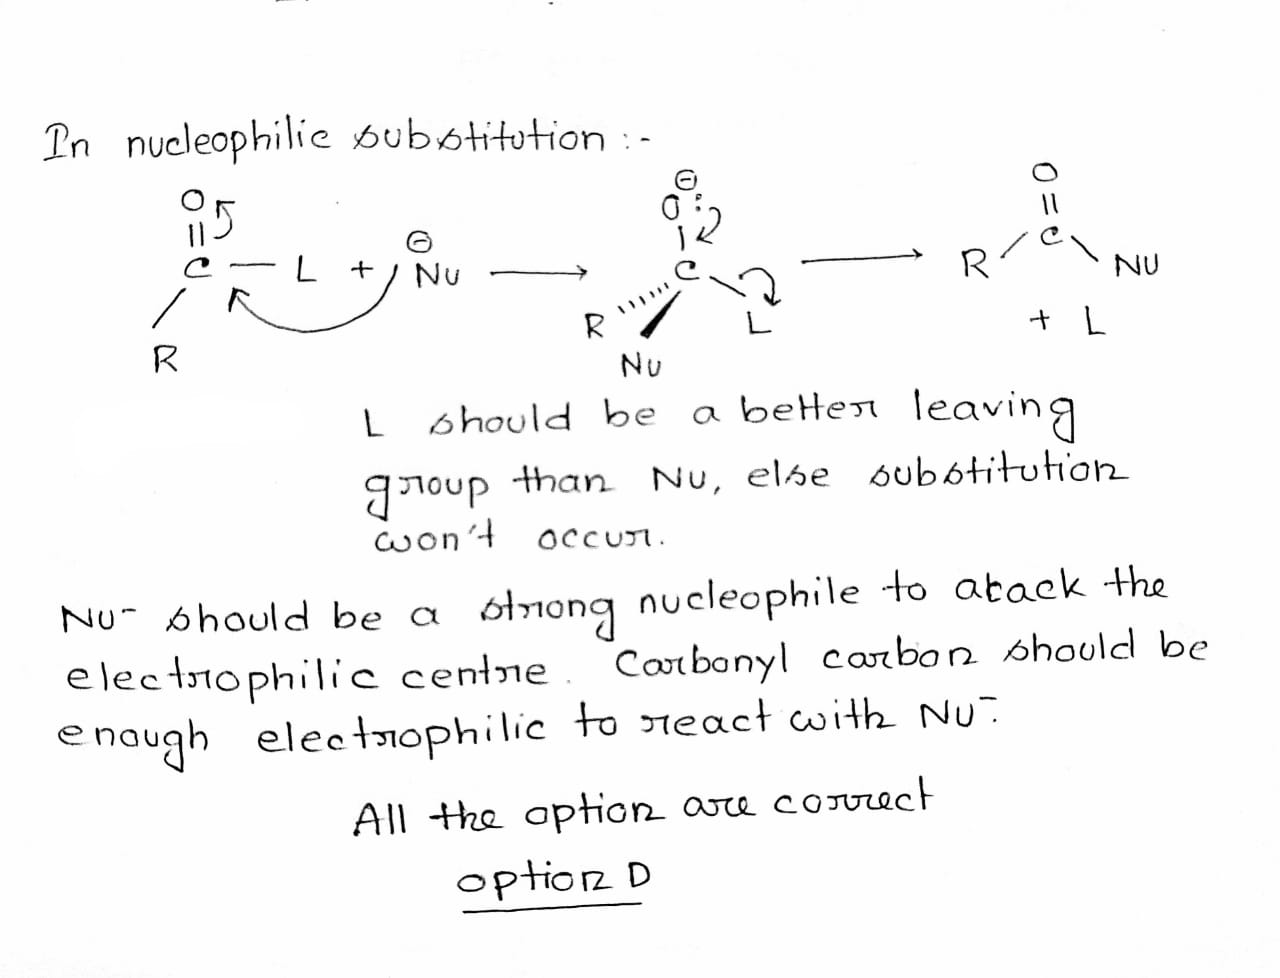 In nucleophilic substitution :-
O
||
C — L + Nu ⊖ ⟶
R
⊖
O :
|
C
R
L
Nu
⟶
O
||
C
R
NU
+ L
L should be a better leaving
group than Nu, else substitution
won't occur.
Nu- should be a strong nucleophile to atack the
electrophilic centre. Carbonyl carbon should be
enough electrophilic to react with Nu-.
All the option are correct
option D